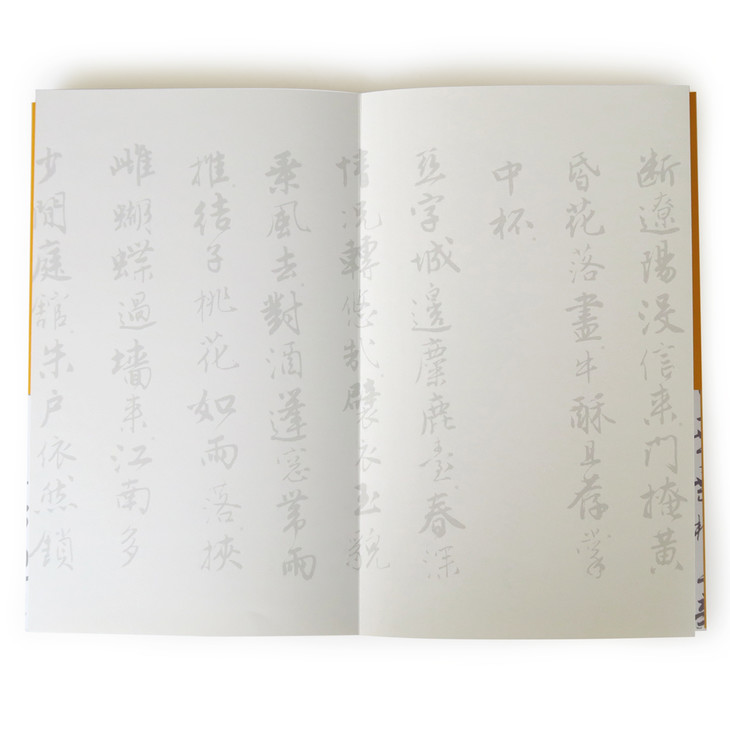 断遼陽没信来門掩黄
昏花落盡牛酥且荐掌
中杯
亞字城邊麋鹿臺春深
情况轉悠哉襞衣玉貌
乗風去對酒蓬窓帯雨
推結子桃花如雨落挾
雌蝴蝶過墻来江南多
少閒庭館朱户依然鎖